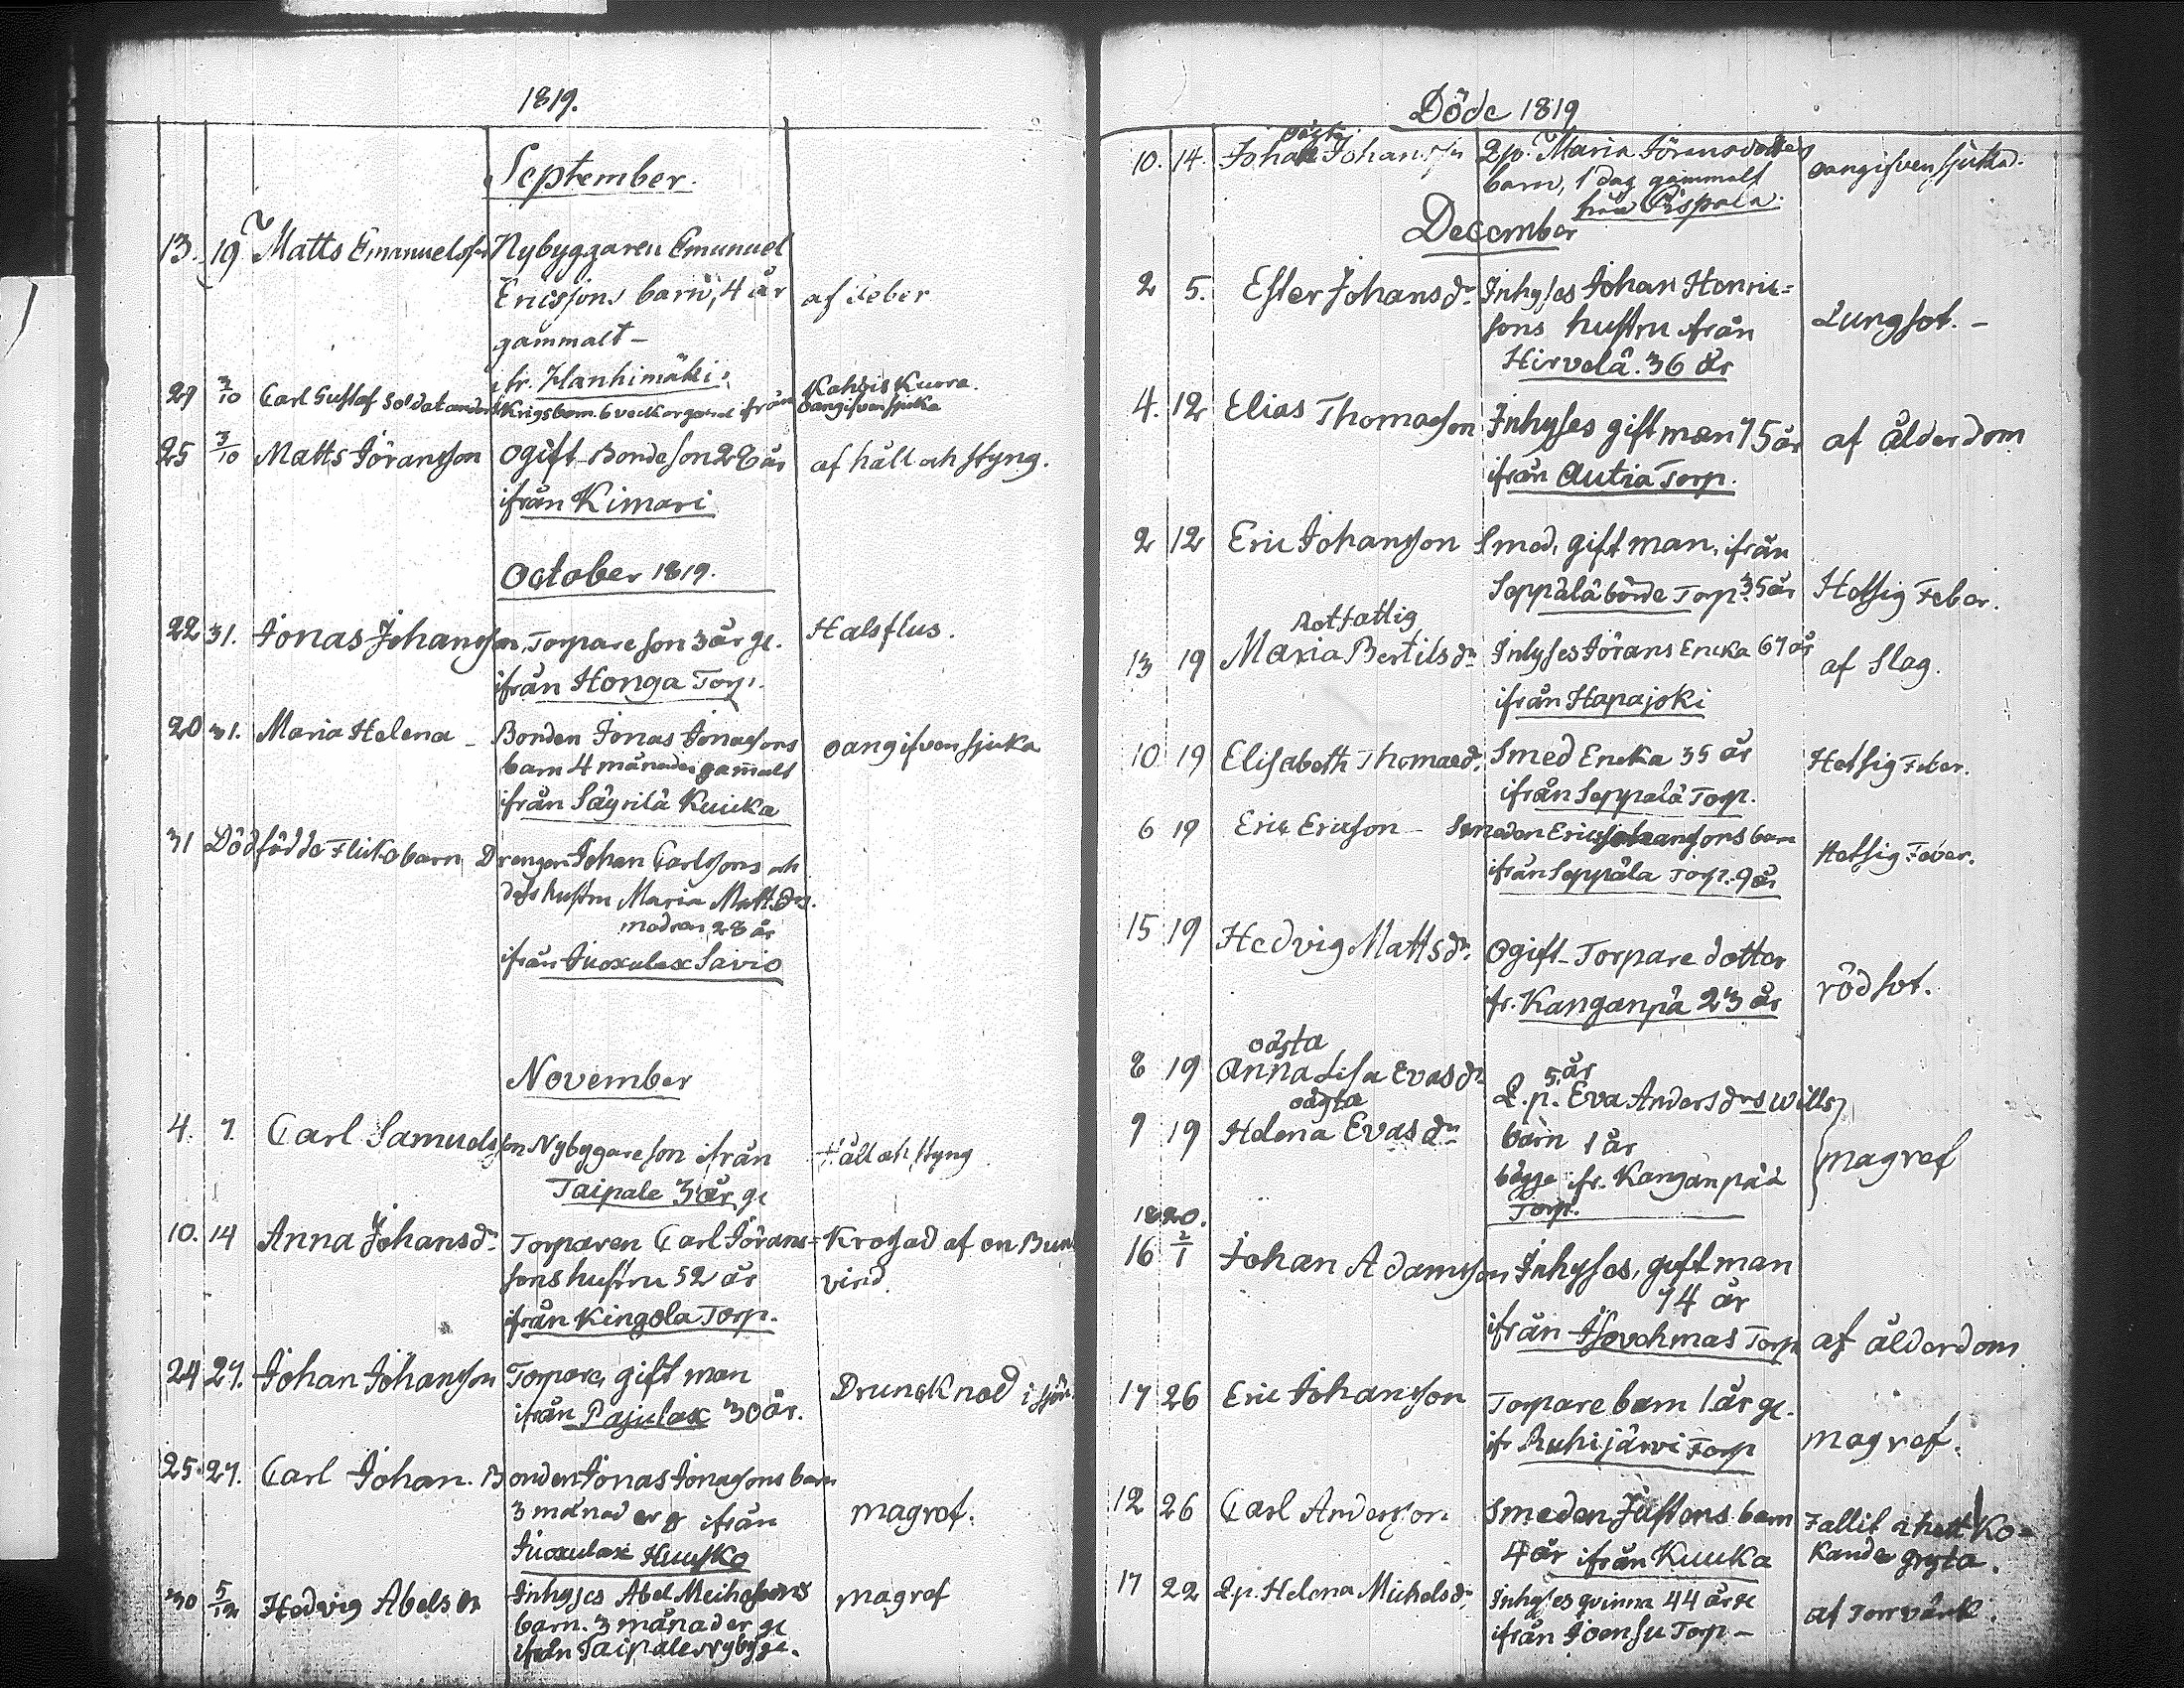 1819.
September.
13. 19 Matts Emanuelsson Nybyggaren Emanuel
Ericssons barn, 4 år af feber
gammalt –
fr. Hanhimäki.
29 3/10 Carl Gustaf Krigsbarn 6 veckor gam. ifrån Kahvis Kuvra. oangifven sjuka
25 3/10 Matts Göransson Ogift Bondeson 28 år af håll och styng.
ifrån Kimari
October 1819.
22 31. Jonas Johansson, Torpare son 3 år gl. Halsflus.
ifrån Honga Torp.
20 31. Maria Helena – Bonden Jonas Jonassons oangifven sjuka
barn 4 månader gammalt
ifrån Säyrilä Kuuka
31 Dödfödde Flickobarn Drengen Johan Carlssons och
dess hustru Maria Matts drs.
modren 28 år
ifrån Juoxulax Savio
November
4. 7. Carl Samuelsson Nybygare son ifrån Håll och styng
Taipale 3 år gl
10. 14 Anna Johansdr Torparen Carl Görans= Krossad af en
sons hustru 52 år vind.
ifrån Kingola Torp.
24 27. Johan Johansson Torpare, gift man Druncknad i sjön
ifrån Pajulax 30 år.
25. 27. Carl Johan. Bonden Jonas Jonassons barn
3 månader g ifrån magref.
Juoxulax Huusko
30 5/12 Hedvig Abelsdr Inhyses Abel barn magref
barn. 3 månader gl
ifrån Taipale nybygge.
Döde 1819
oägta
10. 14. Johan Johansson Qp. Maria Göransdotters oangifven sjukd.
barn, 1 dag gammalt
från Pispala.
December
2 5. Ester Johansdr. Inhyses Johan Henric=
sons hustru ifrån Lungsot. –
Hirvelä. 36 år
4. 12 Elias Thomasson Inhyses gift man 75 år af ålderdom
ifrån Autia Torp.
2 12 Eric Johansson Smed, gift man, ifrån
Seppälä bonde Torp. 35 år Hetsig Feber.
Rotfattig
13 19 Maria Bertilsdr Inhyses Görans Encka 67 år af Slag.
ifrån Hapajoki
10 19 Elisabeth Thomasdr. Smed Encka 35 år Hetsig Feber.
ifrån Seppälä Torp.
6 19 Eric Ericson – Smeden Eric Johanssons barn
ifrån Seppäla Torp. 9 år Hetsig Feber.
15 19 Hedvig Mattsdr. Ogift Torpare dotter
fr. Kanganpä 23 år rödsot.
oägta
8 19 Anna Lisa Evasdr 5 år
Q.p. Eva Andersdrs Wills
oägta
9 19 Helena Evasdr barn 1 år magref
bägge fr. Kanganpää
Torp.
1820.
16 2/1 Johan Adamsson Inhyses, gift man
74 år
ifrån Isovehmas Torp af ålderdom
17 26 Eric Johansson Torpare barn 1 år gl.
ifr Ruhijärvi Torp magref.
12 26 Carl Andersson Smeden Justens barn Fallit i hett Ko=
4 år ifrån Kuuka kande gryta.
17 22 Qp. Helena Michelsdr. Inhyses qvinna 44 år gl
ifrån Joensu Torp – af Torrvärk.